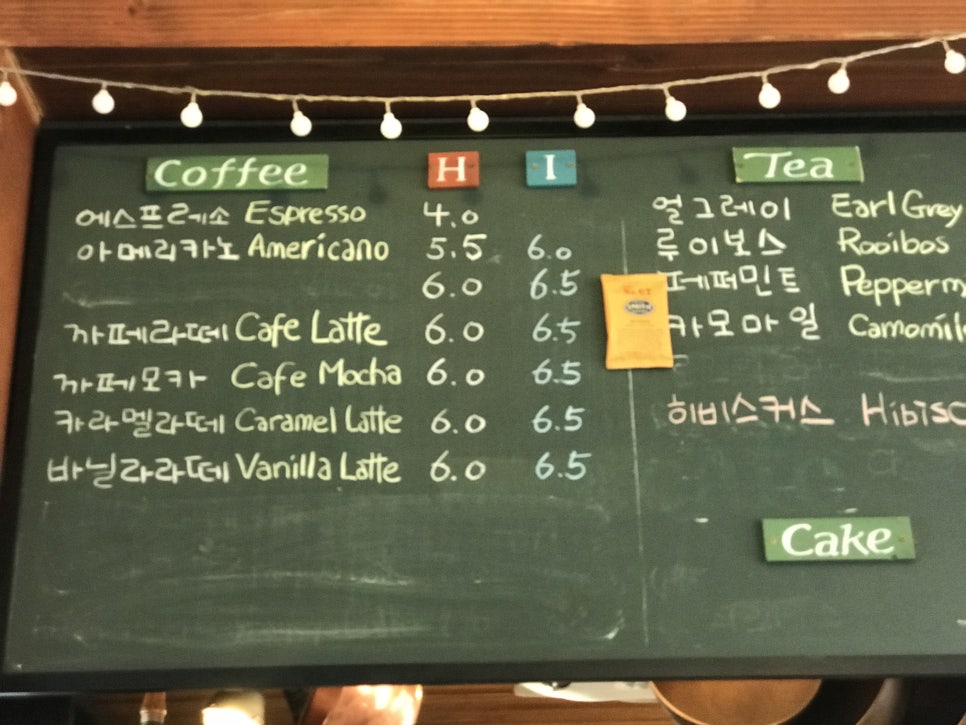 Coffee H I
에스프레소 Espresso 4.0
아메리카노 Americano 5.5 6.0
6.0 6.5
까페라떼 Cafe Latte 6.0 6.5
까페모카 Cafe Mocha 6.0 6.5
카라멜라떼 Caramel Latte 6.0 6.5
바닐라라떼 Vanilla Latte 6.0 6.5
Tea
얼그레이 Earl Grey
루이보스 Rooibos
페퍼민트 Pepperm
카모마일 Camomil
히비스커스 Hibisc
Cake